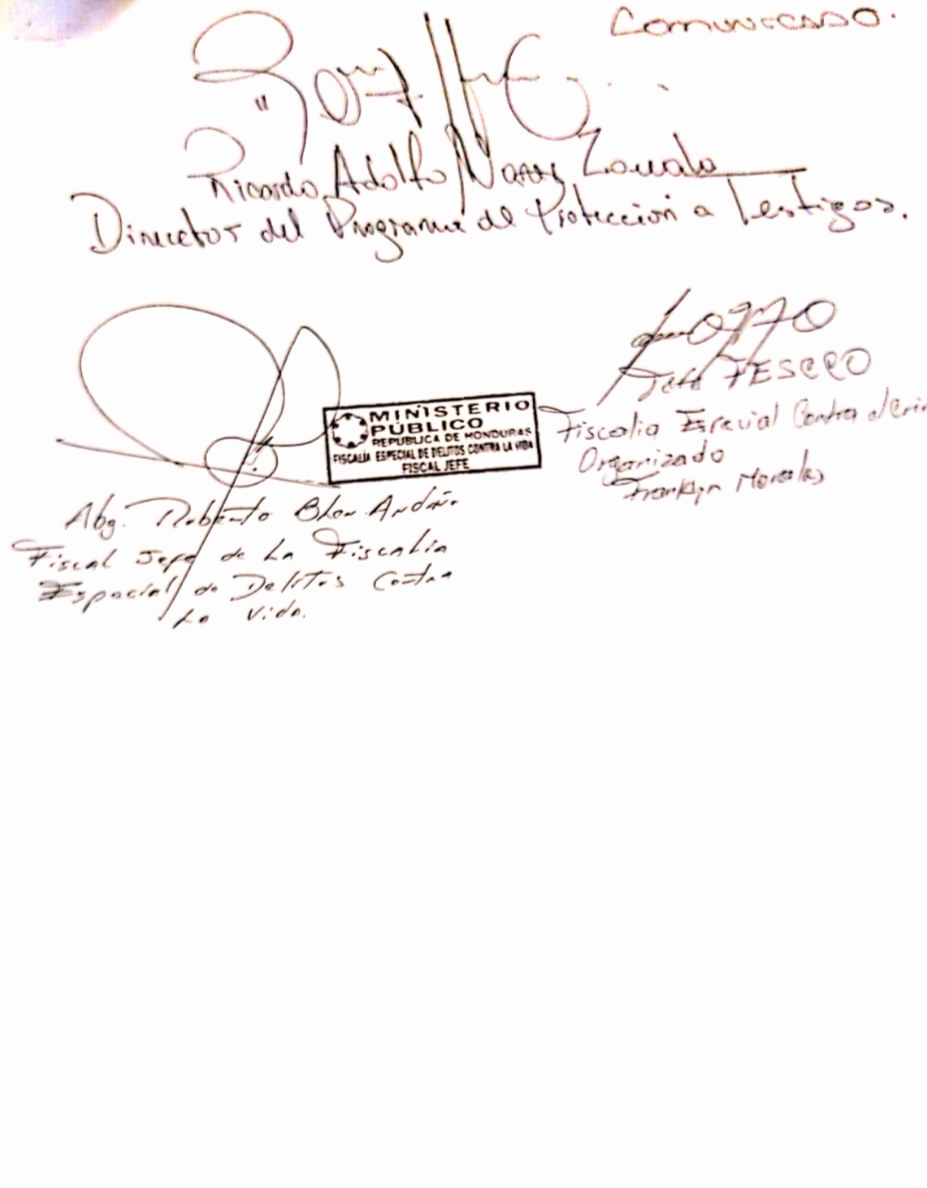 Comunicado.
Ricardo Adolfo
Director del Programa de Protección a Testigos.
Jefe FESCCO
Fiscalia Especial Contra el Crim
Organizado
Franklyn Morales
MINISTERIO
PÚBLICO
REPUBLICA DE HONDURAS
FISCALÍA ESPECIAL DE DELITOS CONTRA LA VIDA
FISCAL JEFE
Abg. Roberto
Fiscal Jefe de La Fiscalia
Especial de Delitos Contra
La Vida.